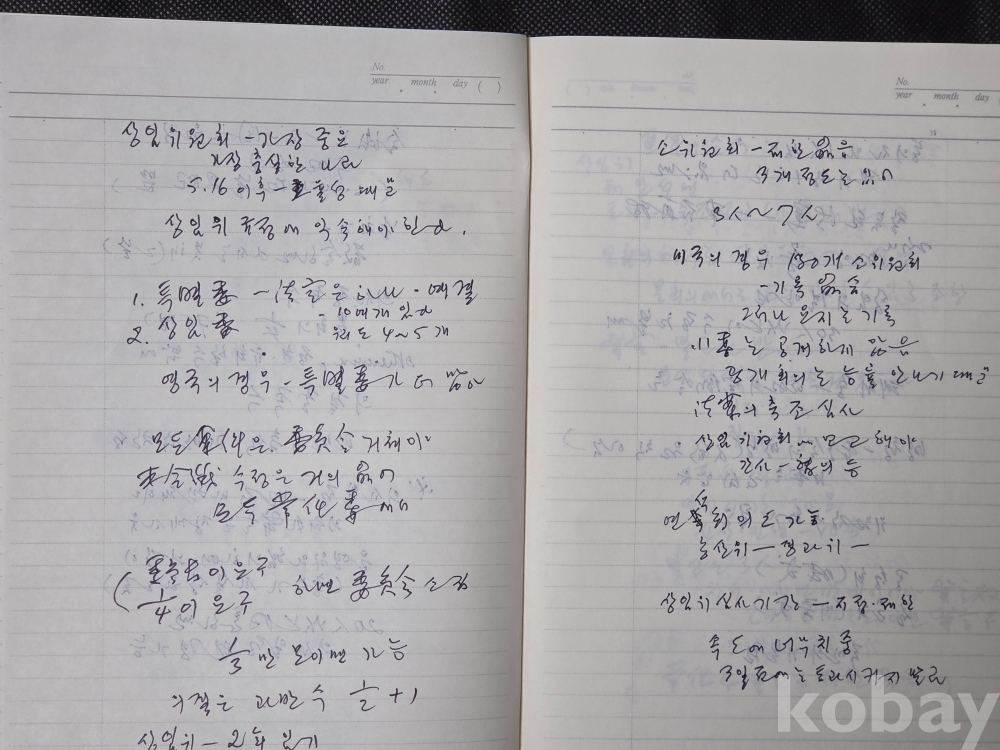 No.
year . month . day ( )
상임위원회 - 가장 중요
가장 충실한 나라
5.16 이후 - 활성 때문
상임위 규정에 약속해야 한다.
1. 특별委 - 法案은 하나 · 예결
- 10여개 있다
2. 상임委 위도 4~5개
영국의 경우 - 특별委가 더 많아
모든 案件은 委員会 거쳐야
本会議 수정은 거의 없어
모두 常任委에서
( 이 요구
1/4 이 요구 하면 委員会 소집
1/3 만 모이면 가능
의결은 과반수 1/2 + 1
상임위 - 2회 읽기
No.
year . month . day
소위원회 - 제한 없음
3개 정도는 있어
3人 ~ 7人
미국의 경우 130개 소위원회
- 기록 없음
그러나 요지는 기록
小委는 공개하지 않음
공개회의는 능률 안나기 때문
法案의 축조심사
상임위원회에 보고해야
간사 - 협의 등
연석회의도 가능
농산위 - 경과위 -
상임위 심사기간 - 지정·제한
속도에 너무 치중
3일 만에는 통과시키지 말도록
kobay